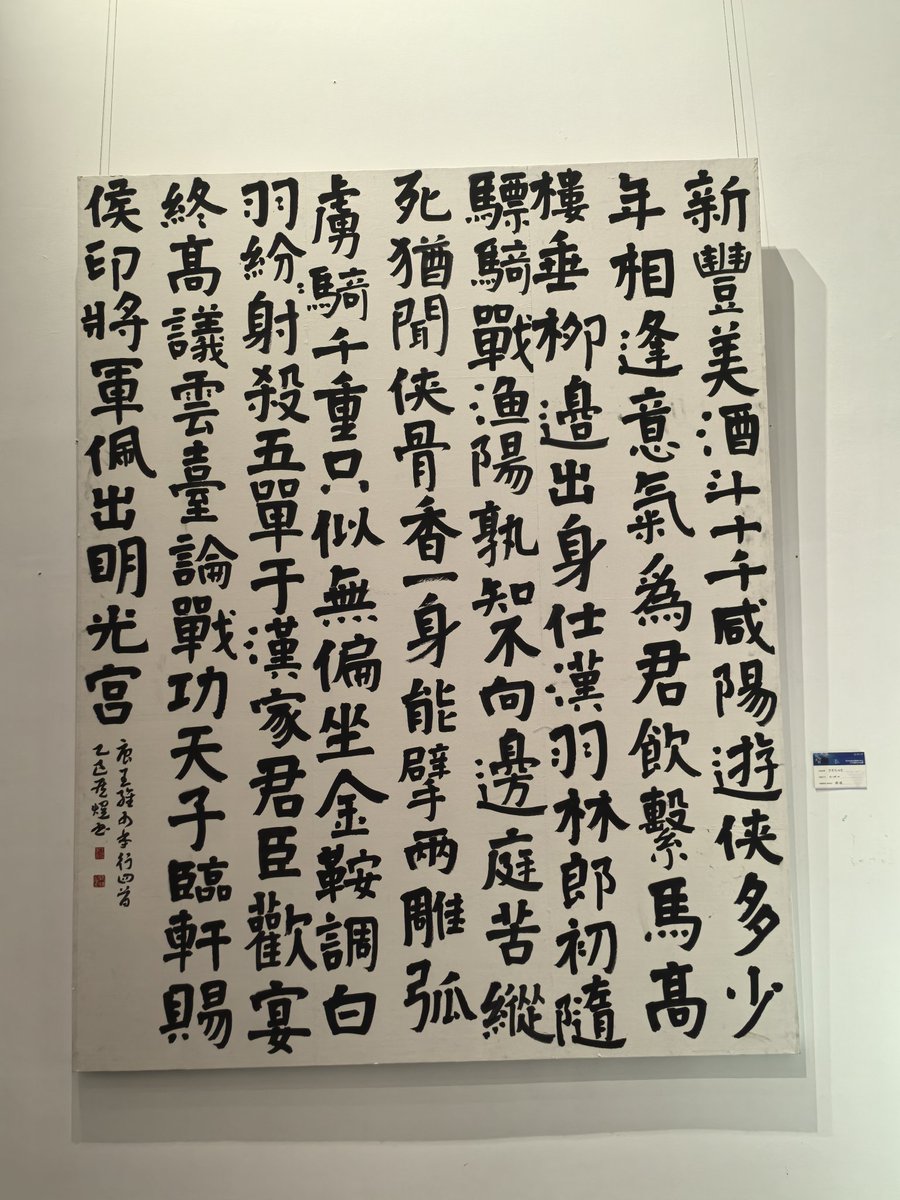 新豐美酒斗十千咸陽遊侠多少
年相逢意氣爲君飲繫馬髙
樓垂柳邊出身仕漢羽林郎初隨
驃騎戰渔陽孰知不向邊庭苦縱
死猶聞侠骨香一身能擘兩雕弧
虜騎千重只似無偏坐金鞍調白
羽紛射殺五單于漢家君臣歡宴
終髙議雲臺論戰功天子臨軒賜
侯印將軍佩出明光宫
唐王維少年行四首
乙巳煜书